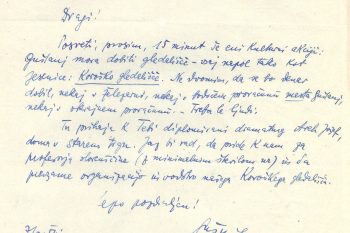 Dragi!
Posveti, prosim, 15 minut še eni kulturni akciji:
Guštanj mora dobiti gledališče – vsaj nepol tako kot
Jesenice: Koroško gledališče. Ne dvomim, da se bo denar
dobil, nekaj v železarni, nekaj v občinskem proračunu mesta Guštanj,
nekaj v okrajnem proračunu – Treba le ljudi.
Tu prihaja k Tebi diplomirani dramaturg
doma v Starem trgu. Jaz bi rad, da pride k nam za
profesorja slovenščine (z minimalnim številom ur) in da
prevzame organizacijo in vodstvo našega Koroškega gledališča.
Lepo pozdravljen!